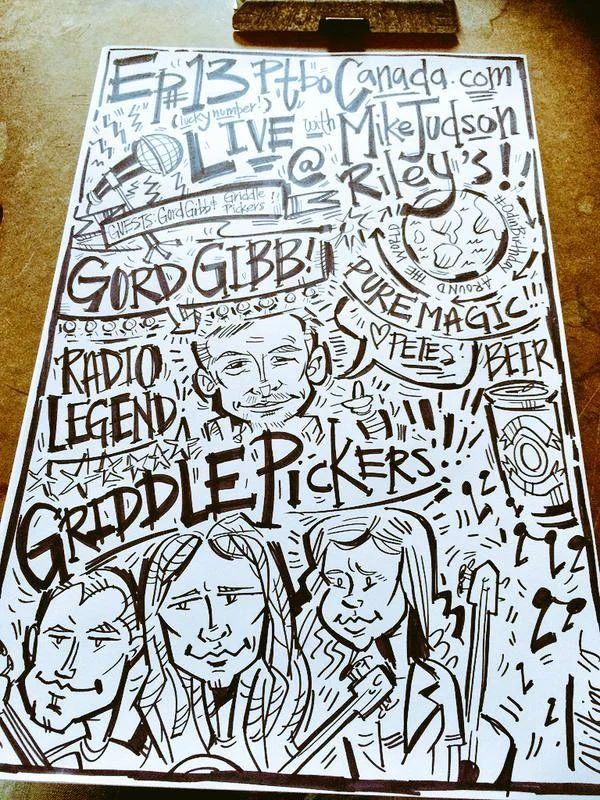 Ep#13 PtboCanada.com
(lucky number!)
LIVE with Mike Judson
@ Riley's!!
GUESTS: Gord Gibb & Griddle
Pickers
GORD GIBB!
AROUND THE WORLD
PURE MAGIC!!!
♡ PETES'
BEER
RADIO
LEGEND
GRIDDLE PICKERS